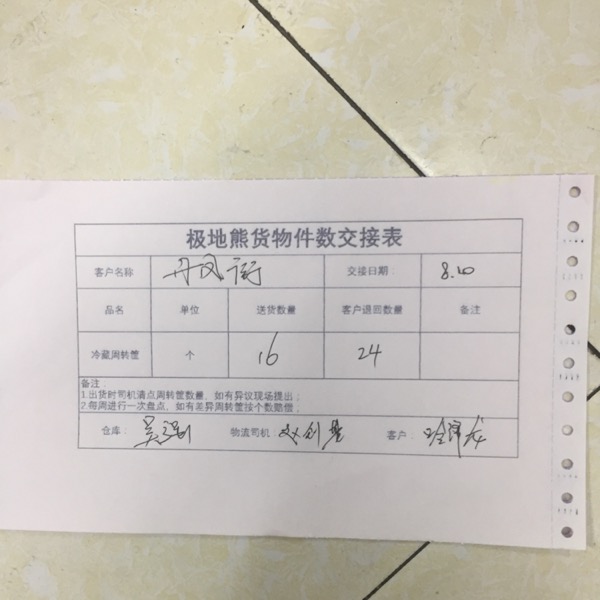 极地熊货物件数交接表
客户名称 丹凤街 交接日期: 8.10
品名 单位 送货数量 客户退回数量 备注
冷藏周转筐 个 16 24
备注:
1.出货时司机清点周转筐数量,如有异议现场提出;
2.每周进行一次盘点,如有差异周转筐按个数赔偿;
仓库: 吴强 物流司机: 客户: